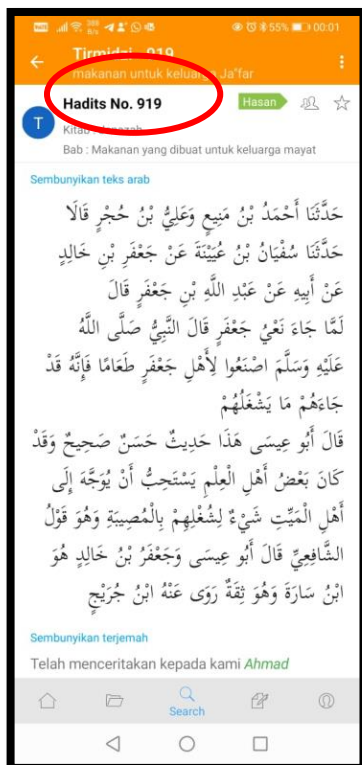 55% 00:01
Tirmidzi 919
makanan untuk keluarga Ja'far
Hadits No. 919
Hasan
T
Kitab : Jenazah
Bab : Makanan yang dibuat untuk keluarga mayat
Sembunyikan teks arab
حَدَّثَنَا أَحْمَدُ بْنُ مَنِيعٍ وَعَلِيُّ بْنُ حُجْرٍ قَالَا
حَدَّثَنَا سُفْيَانُ بْنُ عُيَيْنَةَ عَنْ جَعْفَرِ بْنِ خَالِدٍ
عَنْ أَبِيهِ عَنْ عَبْدِ اللَّهِ بْنِ جَعْفَرٍ قَالَ
لَمَّا جَاءَ نَعْيُ جَعْفَرٍ قَالَ النَّبِيُّ صَلَّى اللَّهُ
عَلَيْهِ وَسَلَّمَ اصْنَعُوا لِأَهْلِ جَعْفَرٍ طَعَامًا فَإِنَّهُ قَدْ
جَاءَهُمْ مَا يَشْغَلُهُمْ
قَالَ أَبُو عِيسَى هَذَا حَدِيثٌ حَسَنٌ صَحِيحٌ وَقَدْ
كَانَ بَعْضُ أَهْلِ الْعِلْمِ يَسْتَحِبُّ أَنْ يُوَجَّهَ إِلَى
أَهْلِ الْمَيِّتِ شَيْءٌ لِشُغْلِهِمْ بِالْمُصِيبَةِ وَهُوَ قَوْلُ
الشَّافِعِيِّ قَالَ أَبُو عِيسَى وَجَعْفَرُ بْنُ خَالِدٍ هُوَ
ابْنُ سَارَةَ وَهُوَ ثِقَةٌ رَوَى عَنْهُ ابْنُ جُرَيْجٍ
Sembunyikan terjemah
Telah menceritakan kepada kami Ahmad
Search